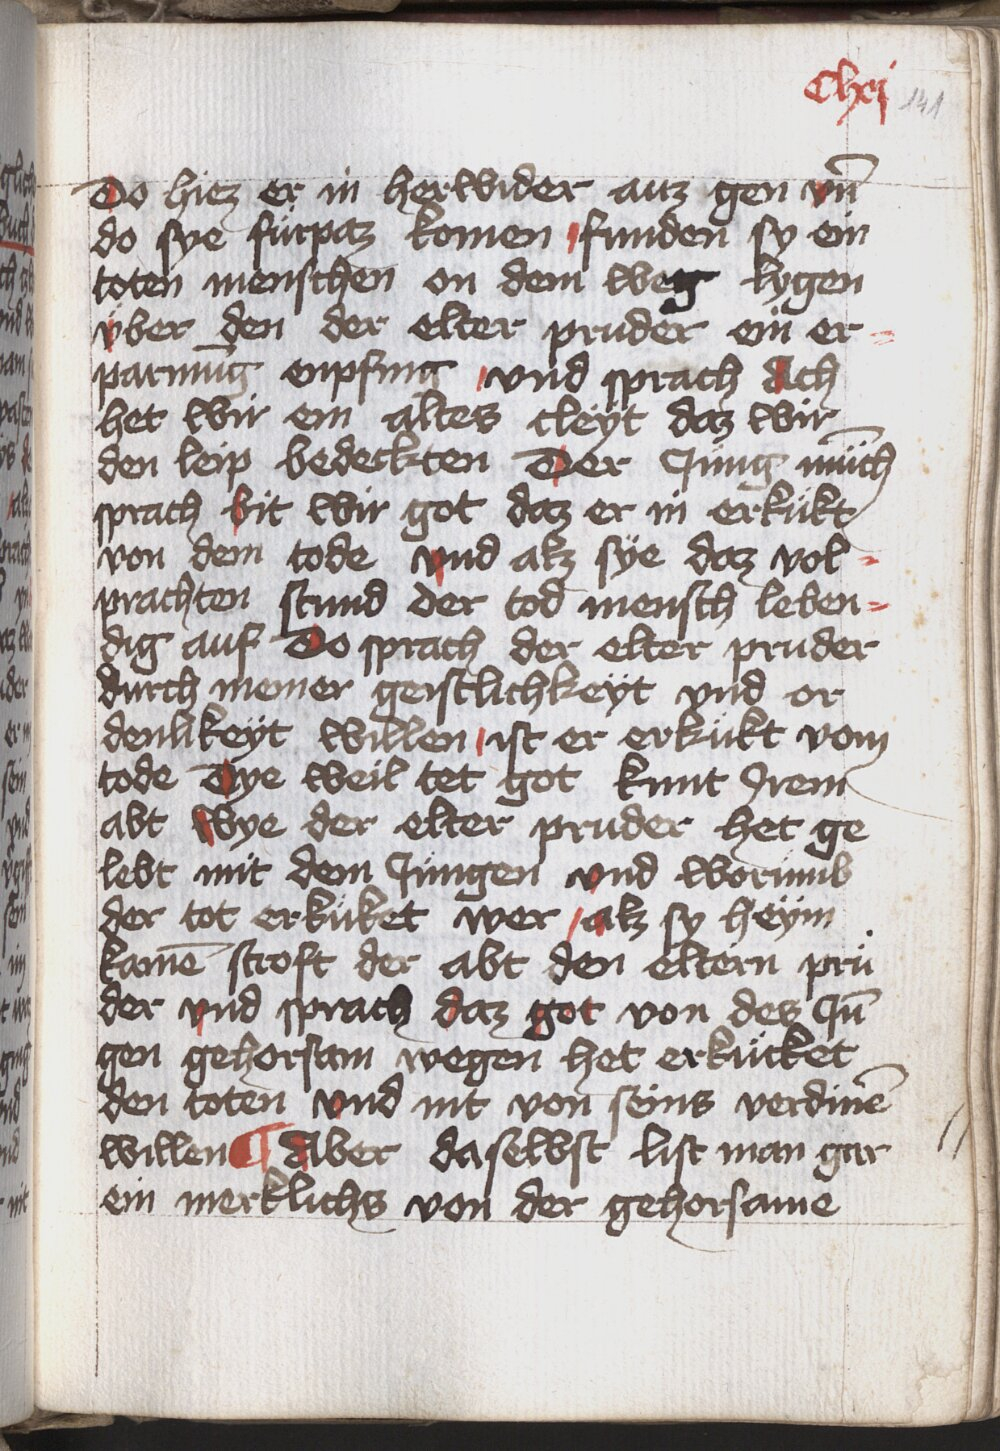 Clxj 141
Do hiez er in herwider auz gen vn̄
do sye fürpaz komen funden sy ein
toten menschen on dem weg lygen
vber den der elter pruder ein er=
parmūg enpfing vnd sprach Ach
het wir ein altes cleyt daz wir
den leip bedeckten Der Jung mūch
sprach bit wir got daz er in erkükt
von dem tode vnd alz sÿe daz vol=
prachten stund der tod mensch leben=
dig auf Do sprach der elter pruder
durch meiner geistlichkeÿt vnd or
denlikeÿt willen ist er erkükt vom
tode Dye weil tet got kunt Jrem
abt Wye der elter pruder het ge
lebt mit dem Jungen vnd worumb
der tot erküket wer alz sy heÿm
kamē stroft der abt den eltern prü
der vnd sprach daz got von des Jū
gen gehorsam wegen het erkücket
den toten vnd nit von seins verdinē
willen ¶ Aber daselbst list man gar
ein merklichs von der gehorsame